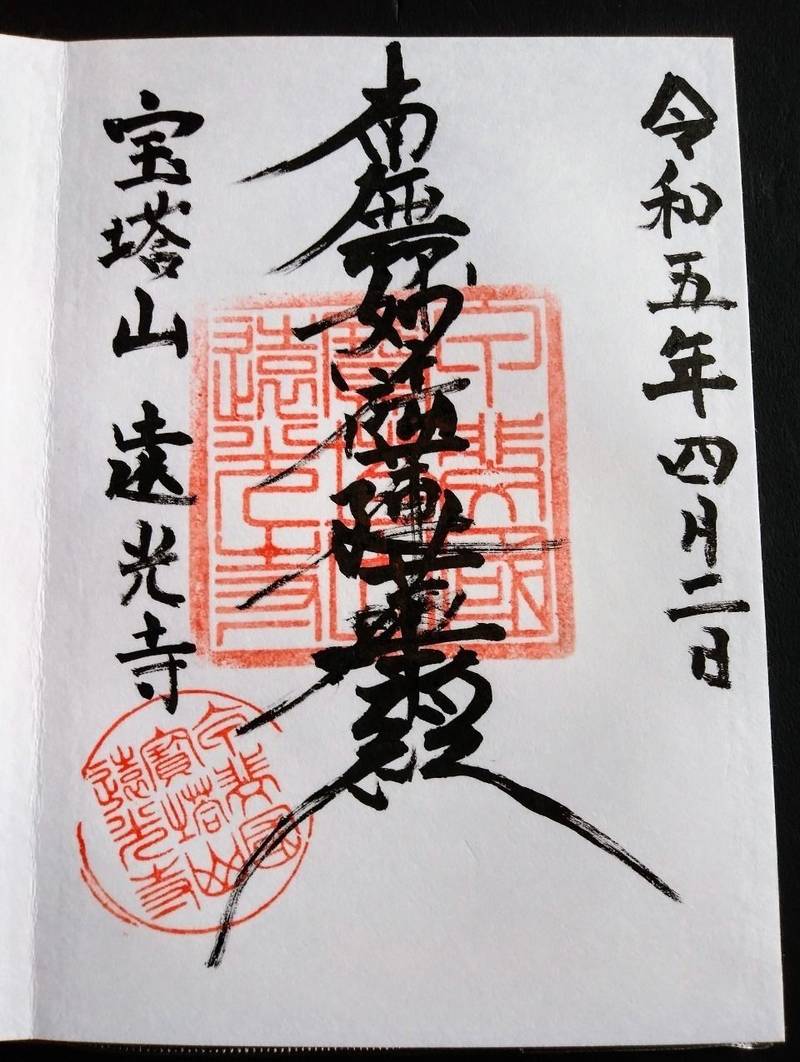 令和五年四月二日
南無妙法蓮華経
宝塔山 遠光寺
甲斐國
寶塔山
遠光寺
甲斐國
寶塔山
遠光寺